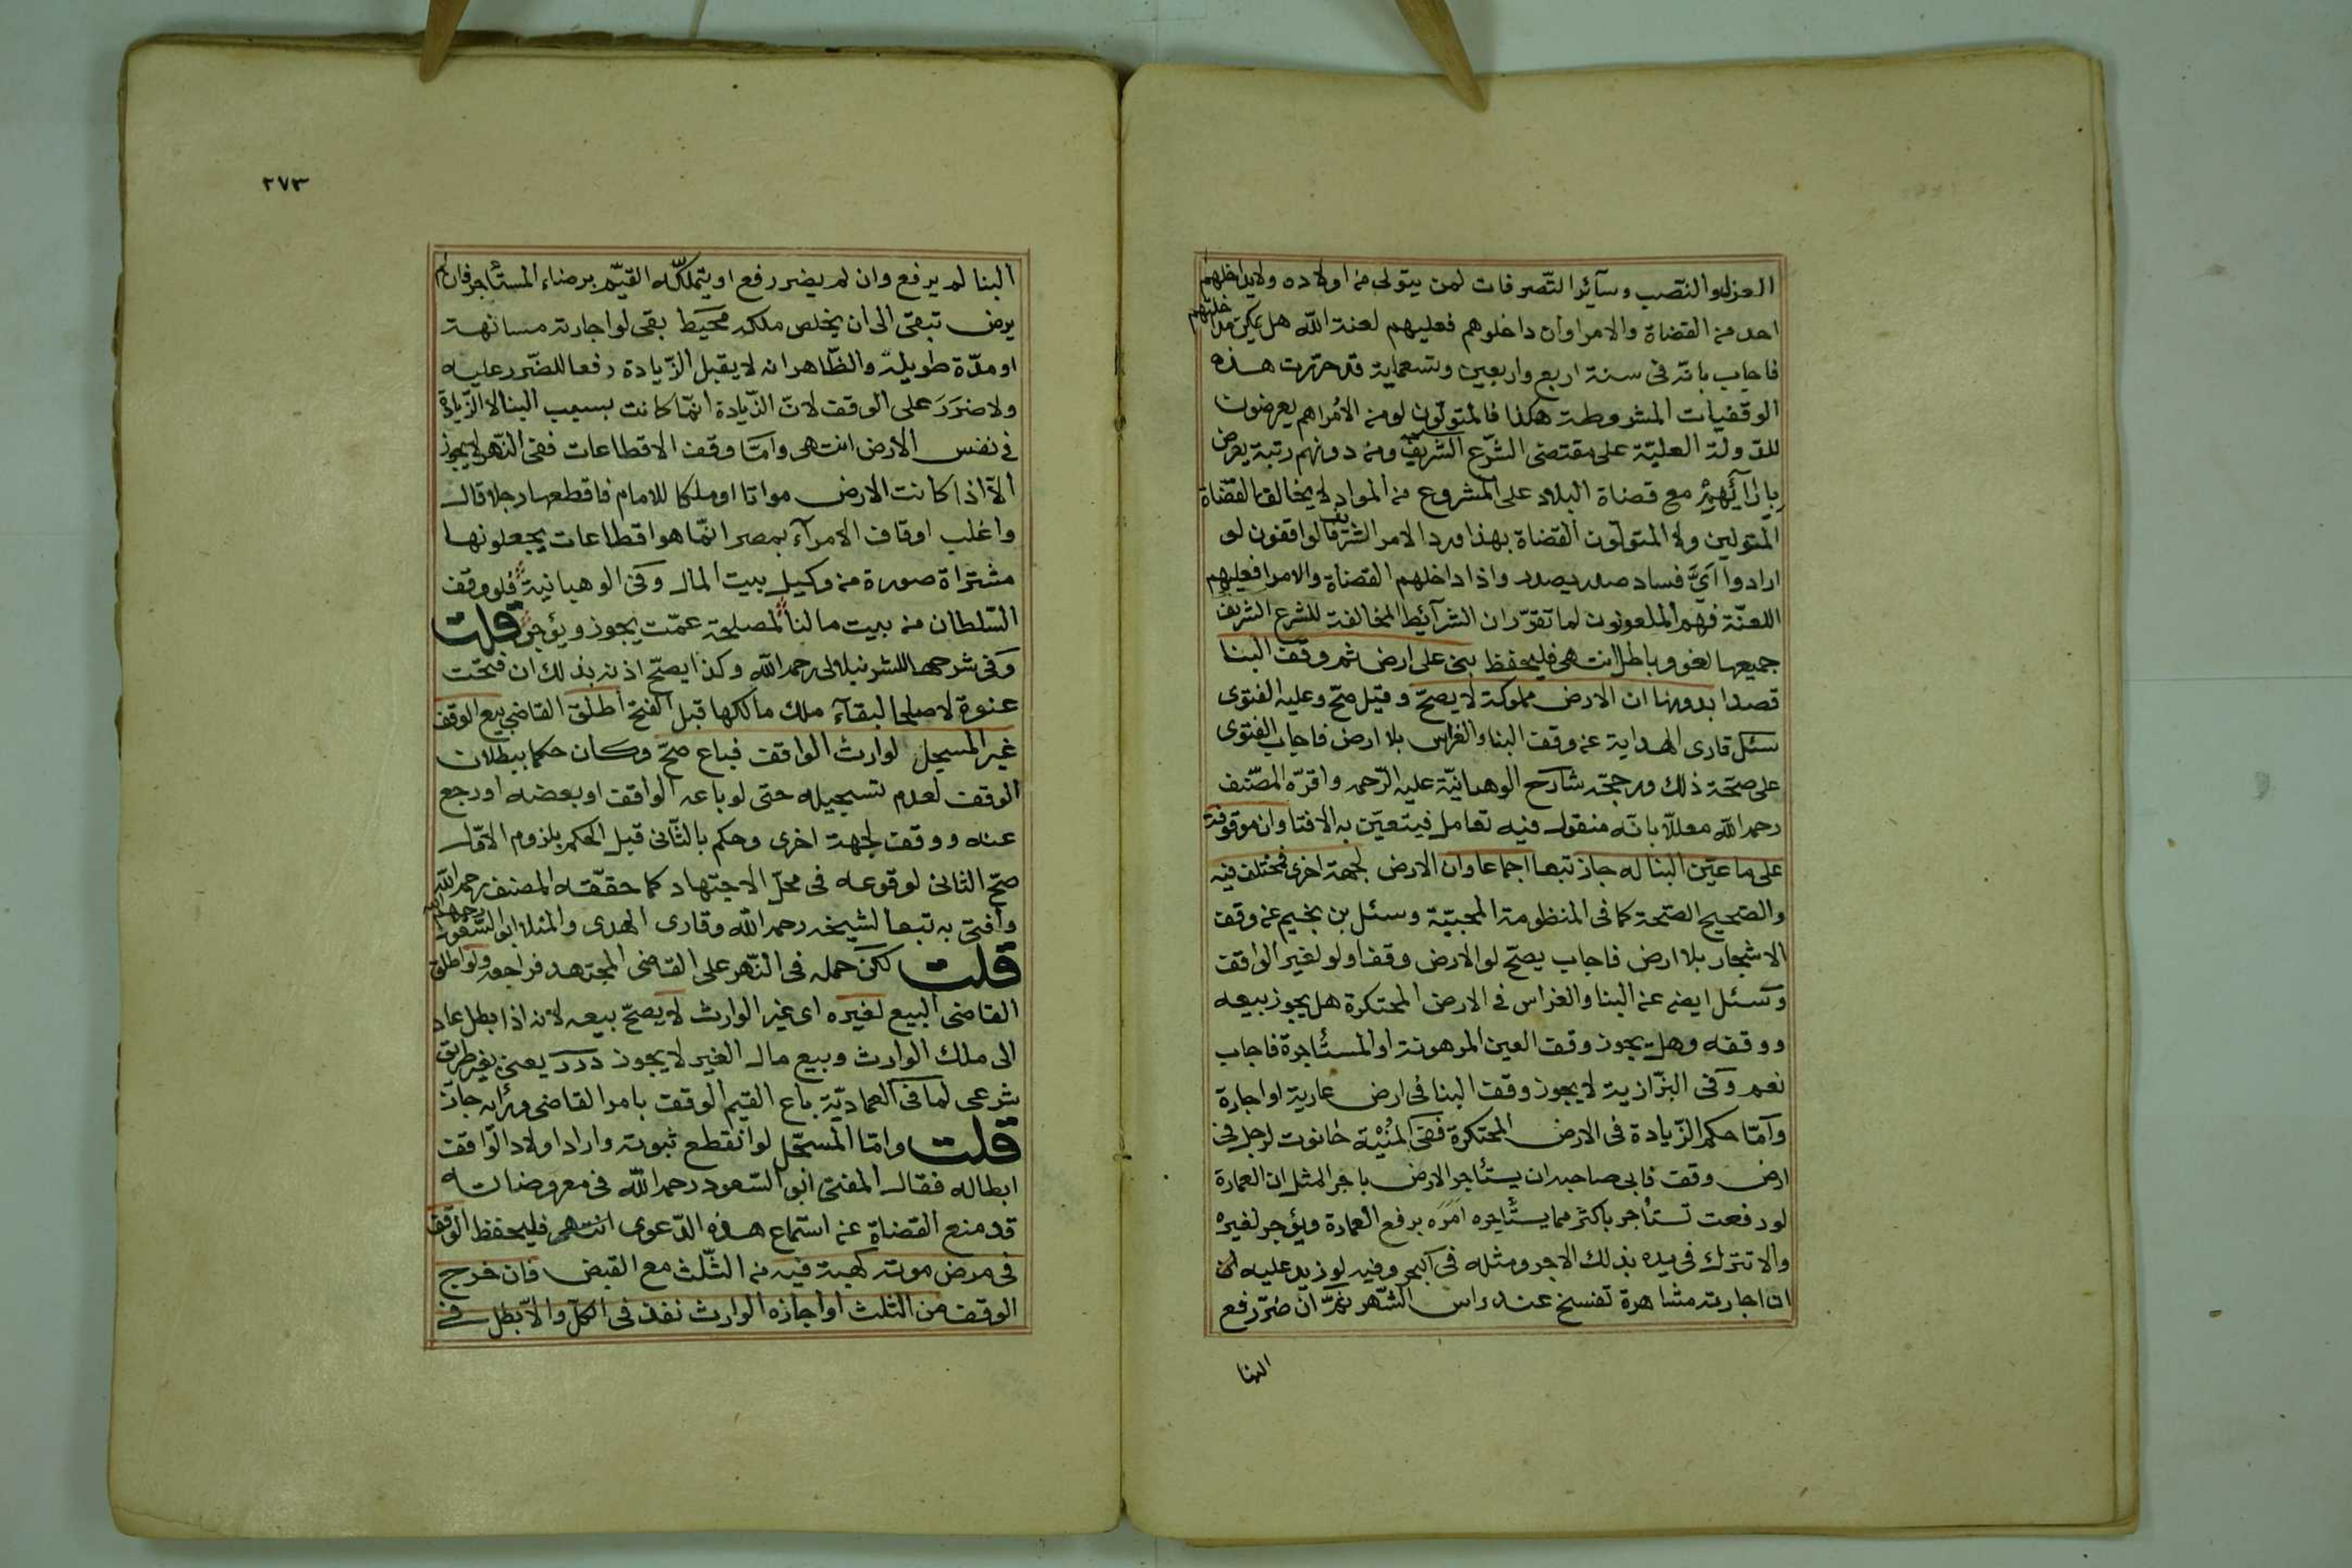 العزل والنصب وسآئر التصرفات لمن يتولى من اولاده ولايداخلهم
احد من القضاة والامرا وان داخلوهم فعليهم لعنة الله هل يمكن مداخلتهم
فاجاب بانه فى سنة اربع واربعين وتسعماية قد حررت هذه
الوقفيات المشروطة هكذا فالمتولون لو من الأمراهم يعرضون
للدولة العلية على مقتضى الشرع الشريف ومن دونهم رتبة يعرض
بارآئهم مع قضاة البلاد على المشروع من المواد لا يخالف القضاة
المتولين ولا المتولون القضاة بهذا ورد الامر الشريف فالواقفون لو
ارادوا اىّ فساد صدر يصدر واذا داخلهم القضاة والامرا فعليهم
اللعنة فهم الملعونون لما تقرر ان الشرآئط المخالفة للشرع الشريف
جميعها لغو وباطل انتهى فليحفظ بنى على ارض ثم وقف البنا
قصدا بدونها ان الارض مملوكة لا يصح وقيل صح وعليه الفتوى
سئل قارى الهداية عن وقف البنا والغراس بلا ارض فاجاب الفتوى
على صحة ذلك ورجحه شارح الوهبانية عليه الرحمه واقره المصنف
رحمه الله معللا بانه منقول فيه تعامل فيتعين به الافتا وان موقوفة
على ما عين البنا له جاز تبعا اجماعا وان الارض لجهة اخرى فمختلف فيه
والصحيح الصحة كما فى المنظومة المحبية وسئل بن نجيم عن وقف
الاشجار بلا ارض فاجاب يصح لو الارض وقفا ولو لغير الواقف
وسئل ايضه عن البنا والغراس فى الارض المحتكرة هل يجوز بيعه
ووقفه وهل يجوز وقف العين المرهونة او المستأجرة فاجاب
نعم وفى البزازية لا يجوز وقف البنا فى ارض عارية او اجارة
وآما حكم الزيادة فى الارض المحتكرة ففى المنية حانوت لرجل فى
ارض وقف فابى صاحبه ان يستأجر الارض باجر المثل ان العمارة
لو رفعت تستأجر باكثر مما يستأجره امره برفع العمارة ويؤجر لغيره
والا تترك فى يده بذلك الاجر ومثله فى البحر وفيه لو زيد عليه ان
ان اجارته مشاهرة تفسخ عند راس الشهر ثمّ ان ضر رفع
البنا
٢٧٣
البنا لم يرفع وان لم يضر رفع او يتملكه القيم برضاء المستأجر فان لم
يرض تبقى الى ان يخلص ملكه محيط بقى لو اجارته مسانهة
او مدة طويلة والظاهر انه لا يقبل الزيادة دفعا للضرر عليه
ولا ضرر على الوقف لان الزيادة انما كانت بسبب البنا لا الزيادة
فى نفس الارض انتهى وامّا وقف الاقطاعات ففى النهر لا يجوز
الا اذا كانت الارض مواتا او ملكا للامام فاقطعها رجلا قال
واغلب اوقاف الامرآء بمصر انما هو اقطاعات يجعلونها
مشتراة صورة من وكيل بيت المال وفى الوهبانية فلو وقف
السلطان من بيت مالنا لمصلحة عمت يجوز ويؤجر قلت
وفى شرحها للشرنبلالى رحمه الله وكذا يصح اذنه بذلك ان فتحت
عنوة لا صلحا لبقآء ملك مالكها قبل الفتح اطلق القاضى بيع الوقف
غير المسجل لوارث الواقف فباع صح وكان حكما ببطلان
الوقف لعدم تسجيله حتى لو باعه الواقف او بعضه او رجع
عنه ووقف لجهة اخرى وحكم بالثانى قبل الحكم بلزوم الاول
صح الثانى لوقوعه فى محل الاجتهاد كما حققه المصنف رحمه الله
وافتى به تبعا لشيخه رحمه الله وقارى الهدى والمنلا ابو السعود رحمه الله
قلت لكن حمله فى النهر على القاضى المجتهد فراجعه ولو اطلق
القاضى البيع لغيره اى غير الوارث لا يصح بيعه لانه اذا بطل عاد
الى ملك الوارث وبيع مال الغير لا يجوز درر يعنى بغير طريق
شرعى لما فى العمادية باع القيم الوقف بامر القاضى ورأيه جاز
قلت وامّا المسجل لو انقطع ثبوته واراد اولاد الواقف
ابطاله فقال المفتى ابو السعود رحمه الله فى معروضاته
قد منع القضاة عن استماع هذه الدعوى انتهى فليحفظ الوقف
فى مرض موته كهبة فيه من الثلث مع القبض فان خرج
الوقف من الثلث او اجازه الوارث نفذ فى الكل والا بطل فى